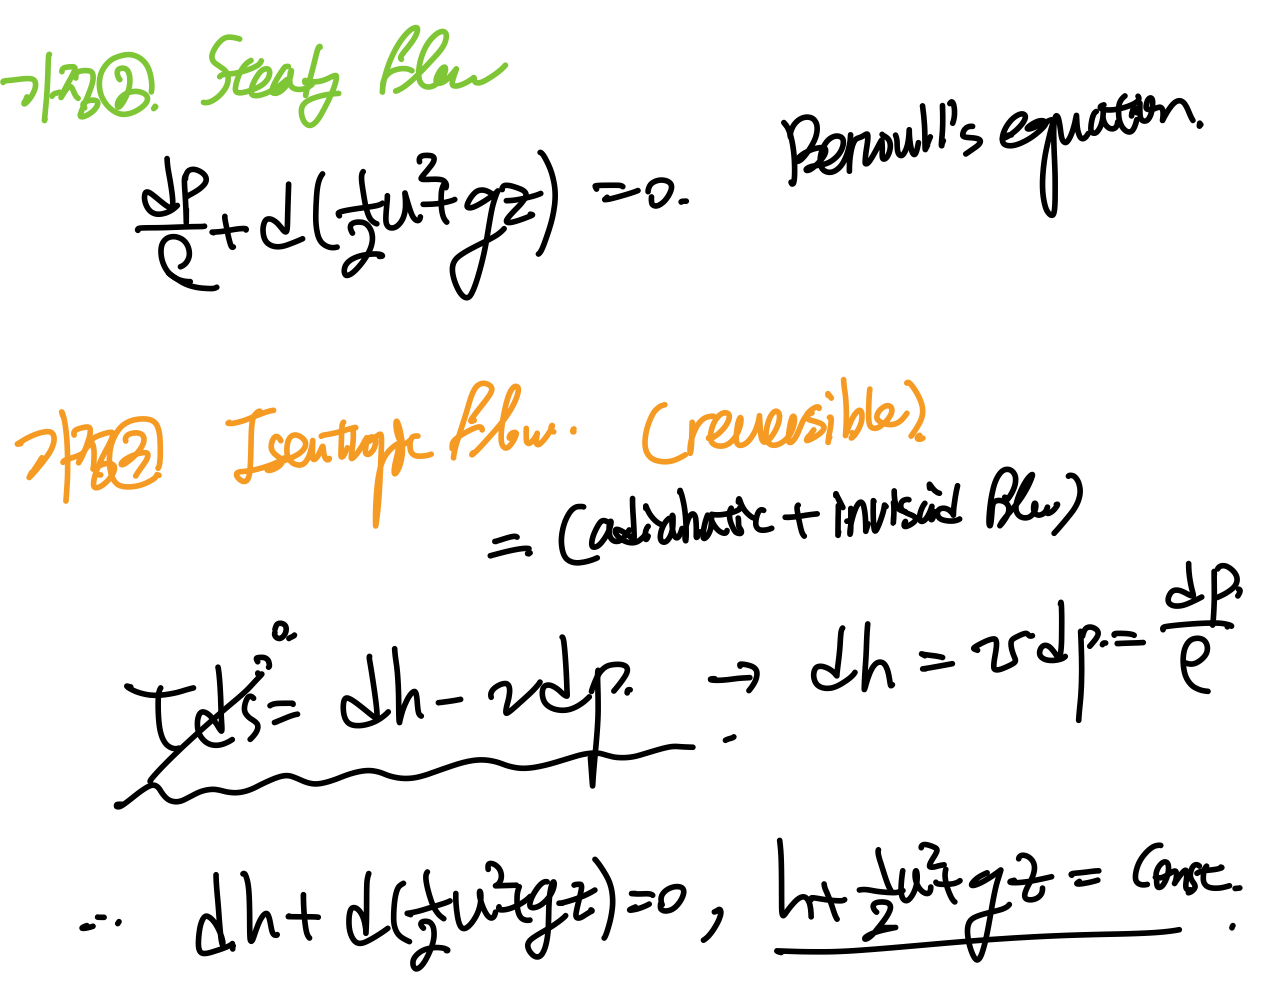 가정②. Steady flow
Bernoulli's equation.
dp/ρ + d(1/2 u² + gz) = 0.
가정③ Isentropic flow. (reversible)
= (adiabatic + inviscid flow)
Tds = dh - vdp. → dh = vdp = dp/ρ.
0.
∴ dh + d(1/2 u² + gz) = 0, h + 1/2 u² + gz = const.